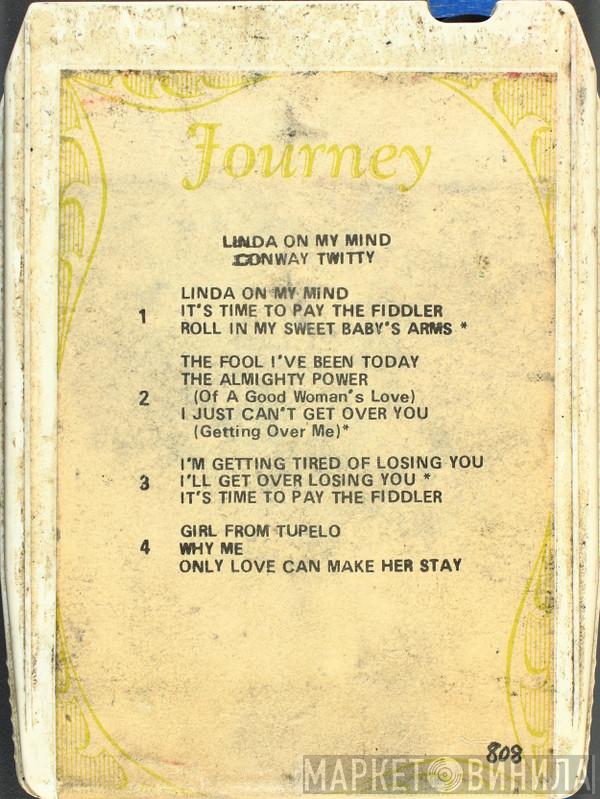 Journey
LINDA ON MY MIND
CONWAY TWITTY
1
LINDA ON MY MIND
IT'S TIME TO PAY THE FIDDLER
ROLL IN MY SWEET BABY'S ARMS *
2
THE FOOL I'VE BEEN TODAY
THE ALMIGHTY POWER
(Of A Good Woman's Love)
I JUST CAN'T GET OVER YOU
(Getting Over Me)*
3
I'M GETTING TIRED OF LOSING YOU
I'LL GET OVER LOSING YOU *
IT'S TIME TO PAY THE FIDDLER
4
GIRL FROM TUPELO
WHY ME
ONLY LOVE CAN MAKE HER STAY
808
МАРКЕТ ВИНИЛА